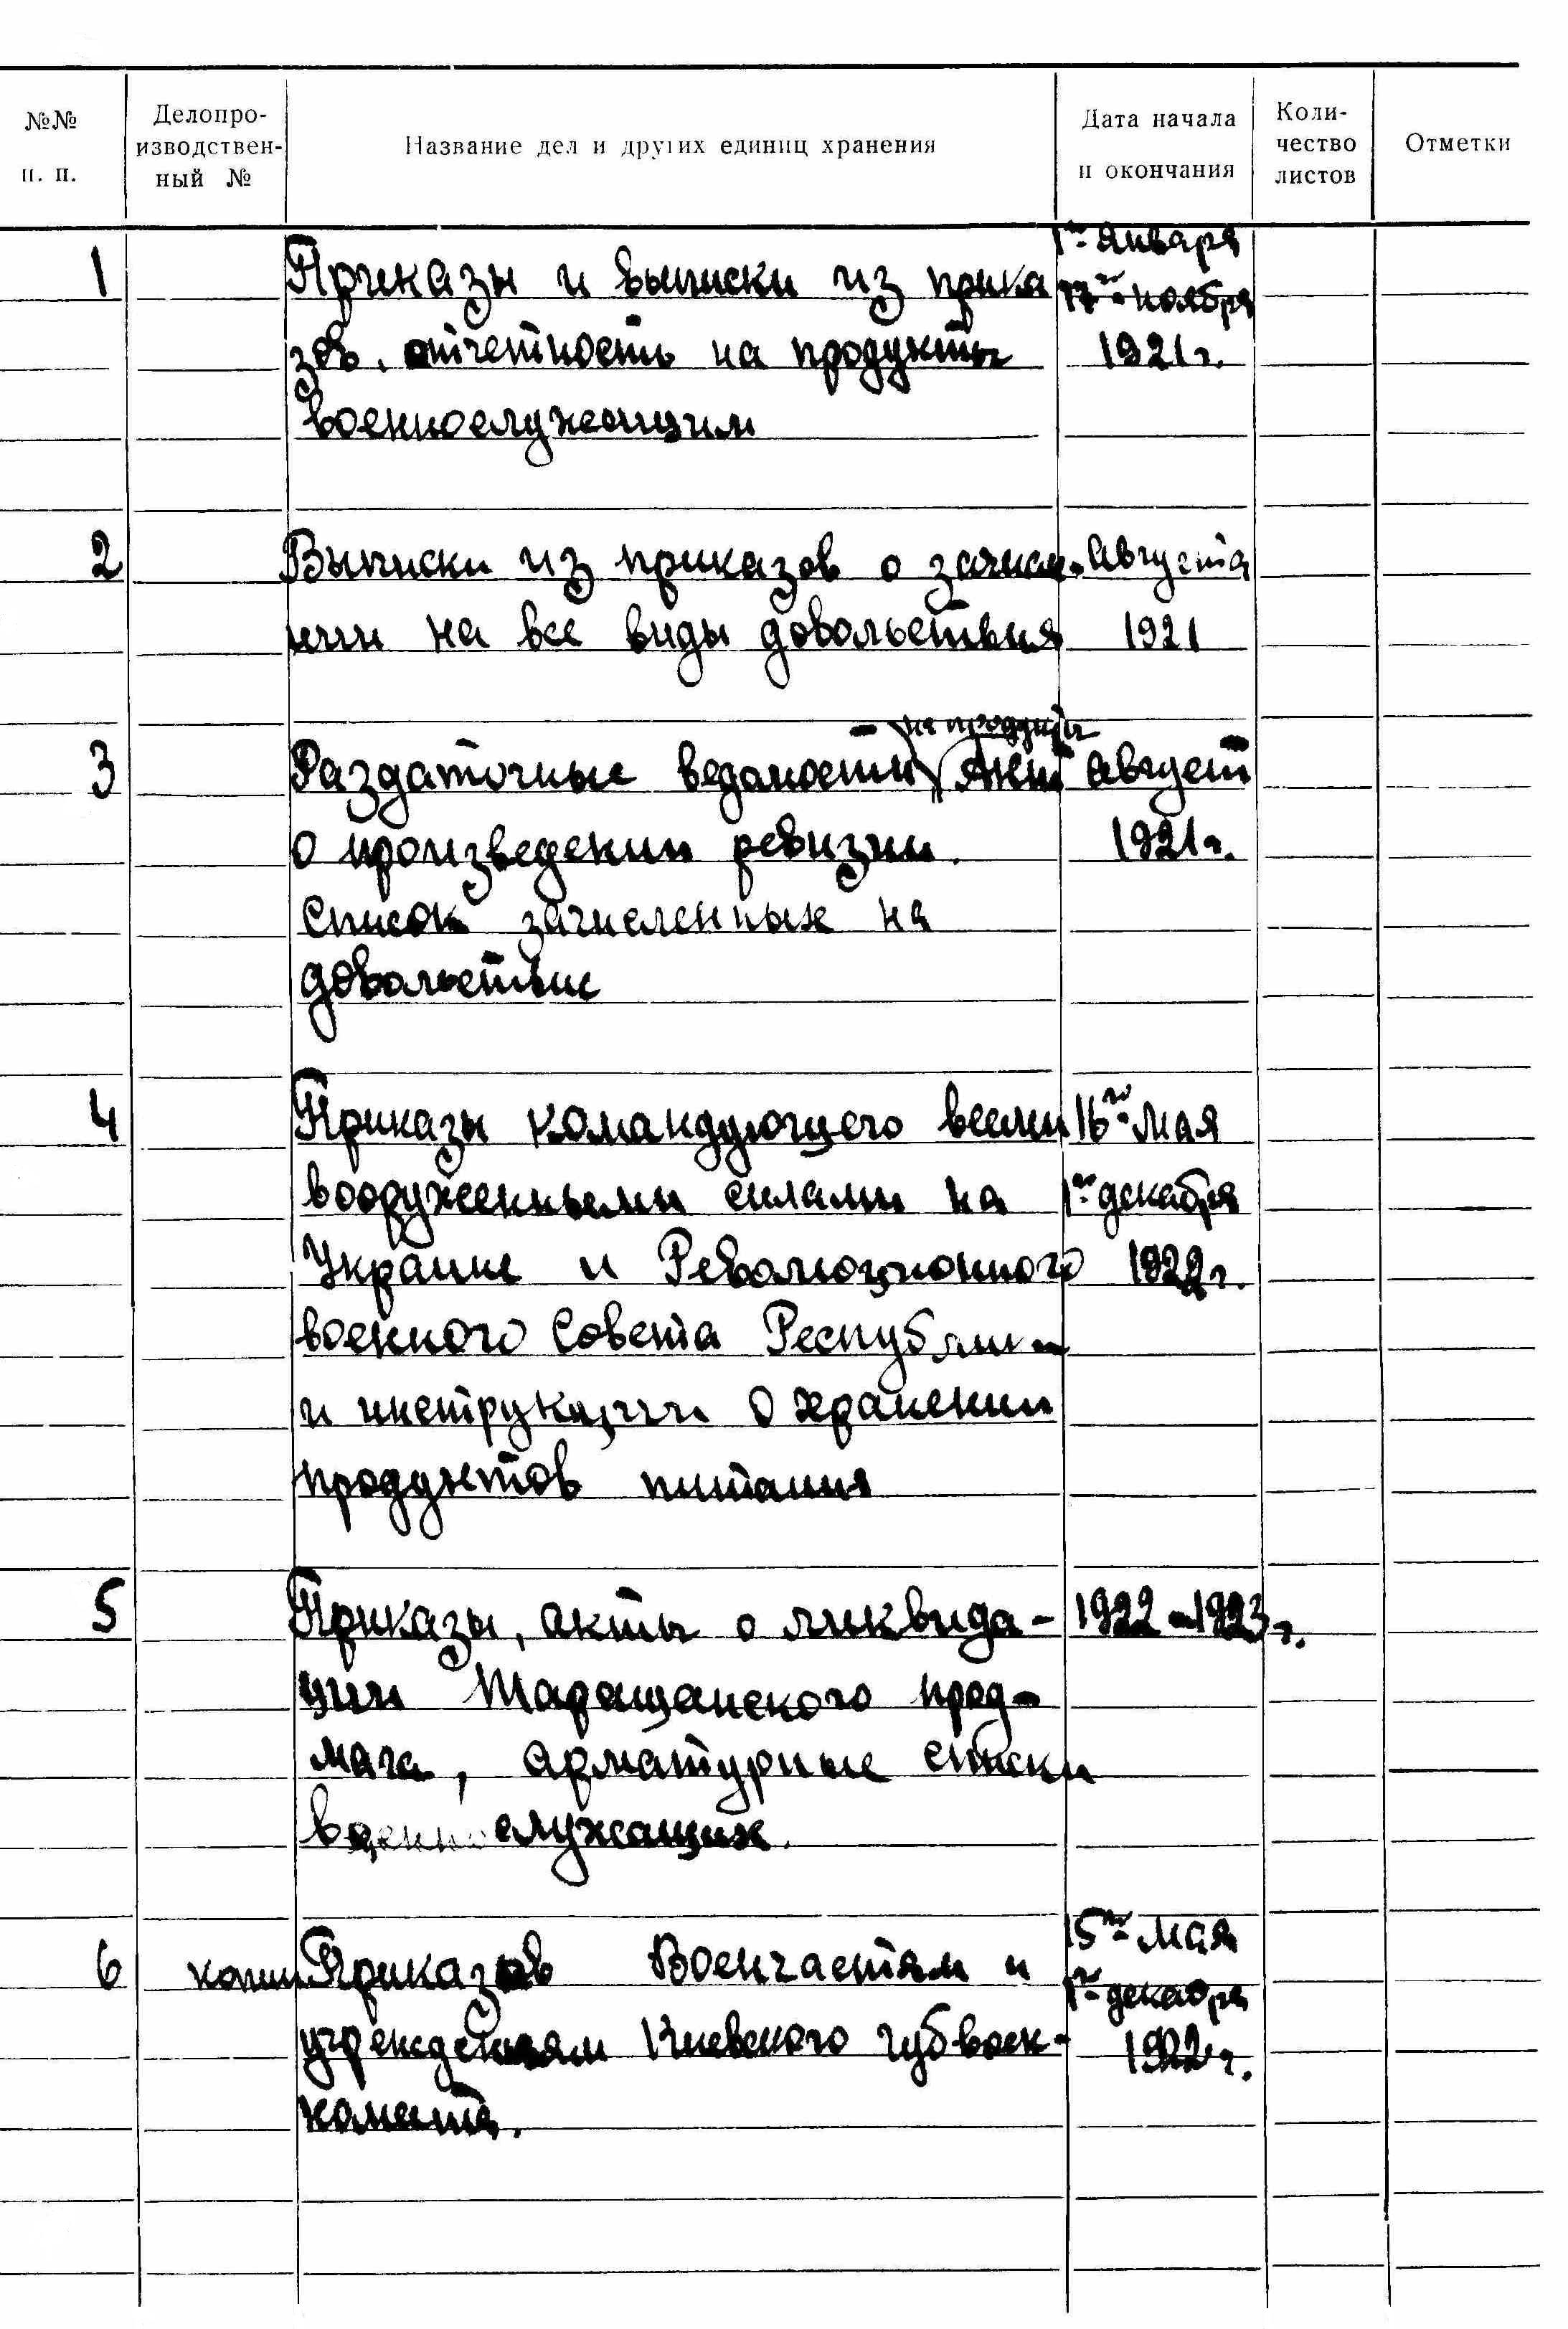 №№ п. п.
Делопро-
изводствен-
ный №
Название дел и других единиц хранения
Дата начала
и окончания
Коли-
чество
листов
Отметки
1го января
1
Приказы и выписки из прика
17го ноября
зов, отчетность на продукты
1921г.
военнослужащим
2
Выписки из приказов о зачисл-
августа
ении на все виды довольствия
1921
на продукты
3
Раздаточные ведомости Акт
август
о произведении ревизии.
1921г.
Список зачисленных на
довольствие
4
Приказы командующего всеми
16го мая
вооруженными силами на
1го декабря
Украине и Революционного
1922г.
военного Совета Республики
и инструкции о хранении
продуктов питания
5
Приказы, акты о ликвида-
1922-1923г.
ции Таращанского прод-
мага, арматурные списки
военнослужащих.
15го мая
6
копии Приказов Военчастям и
1го декабря
учреждениям Киевского губвоен-
1922г.
комата.